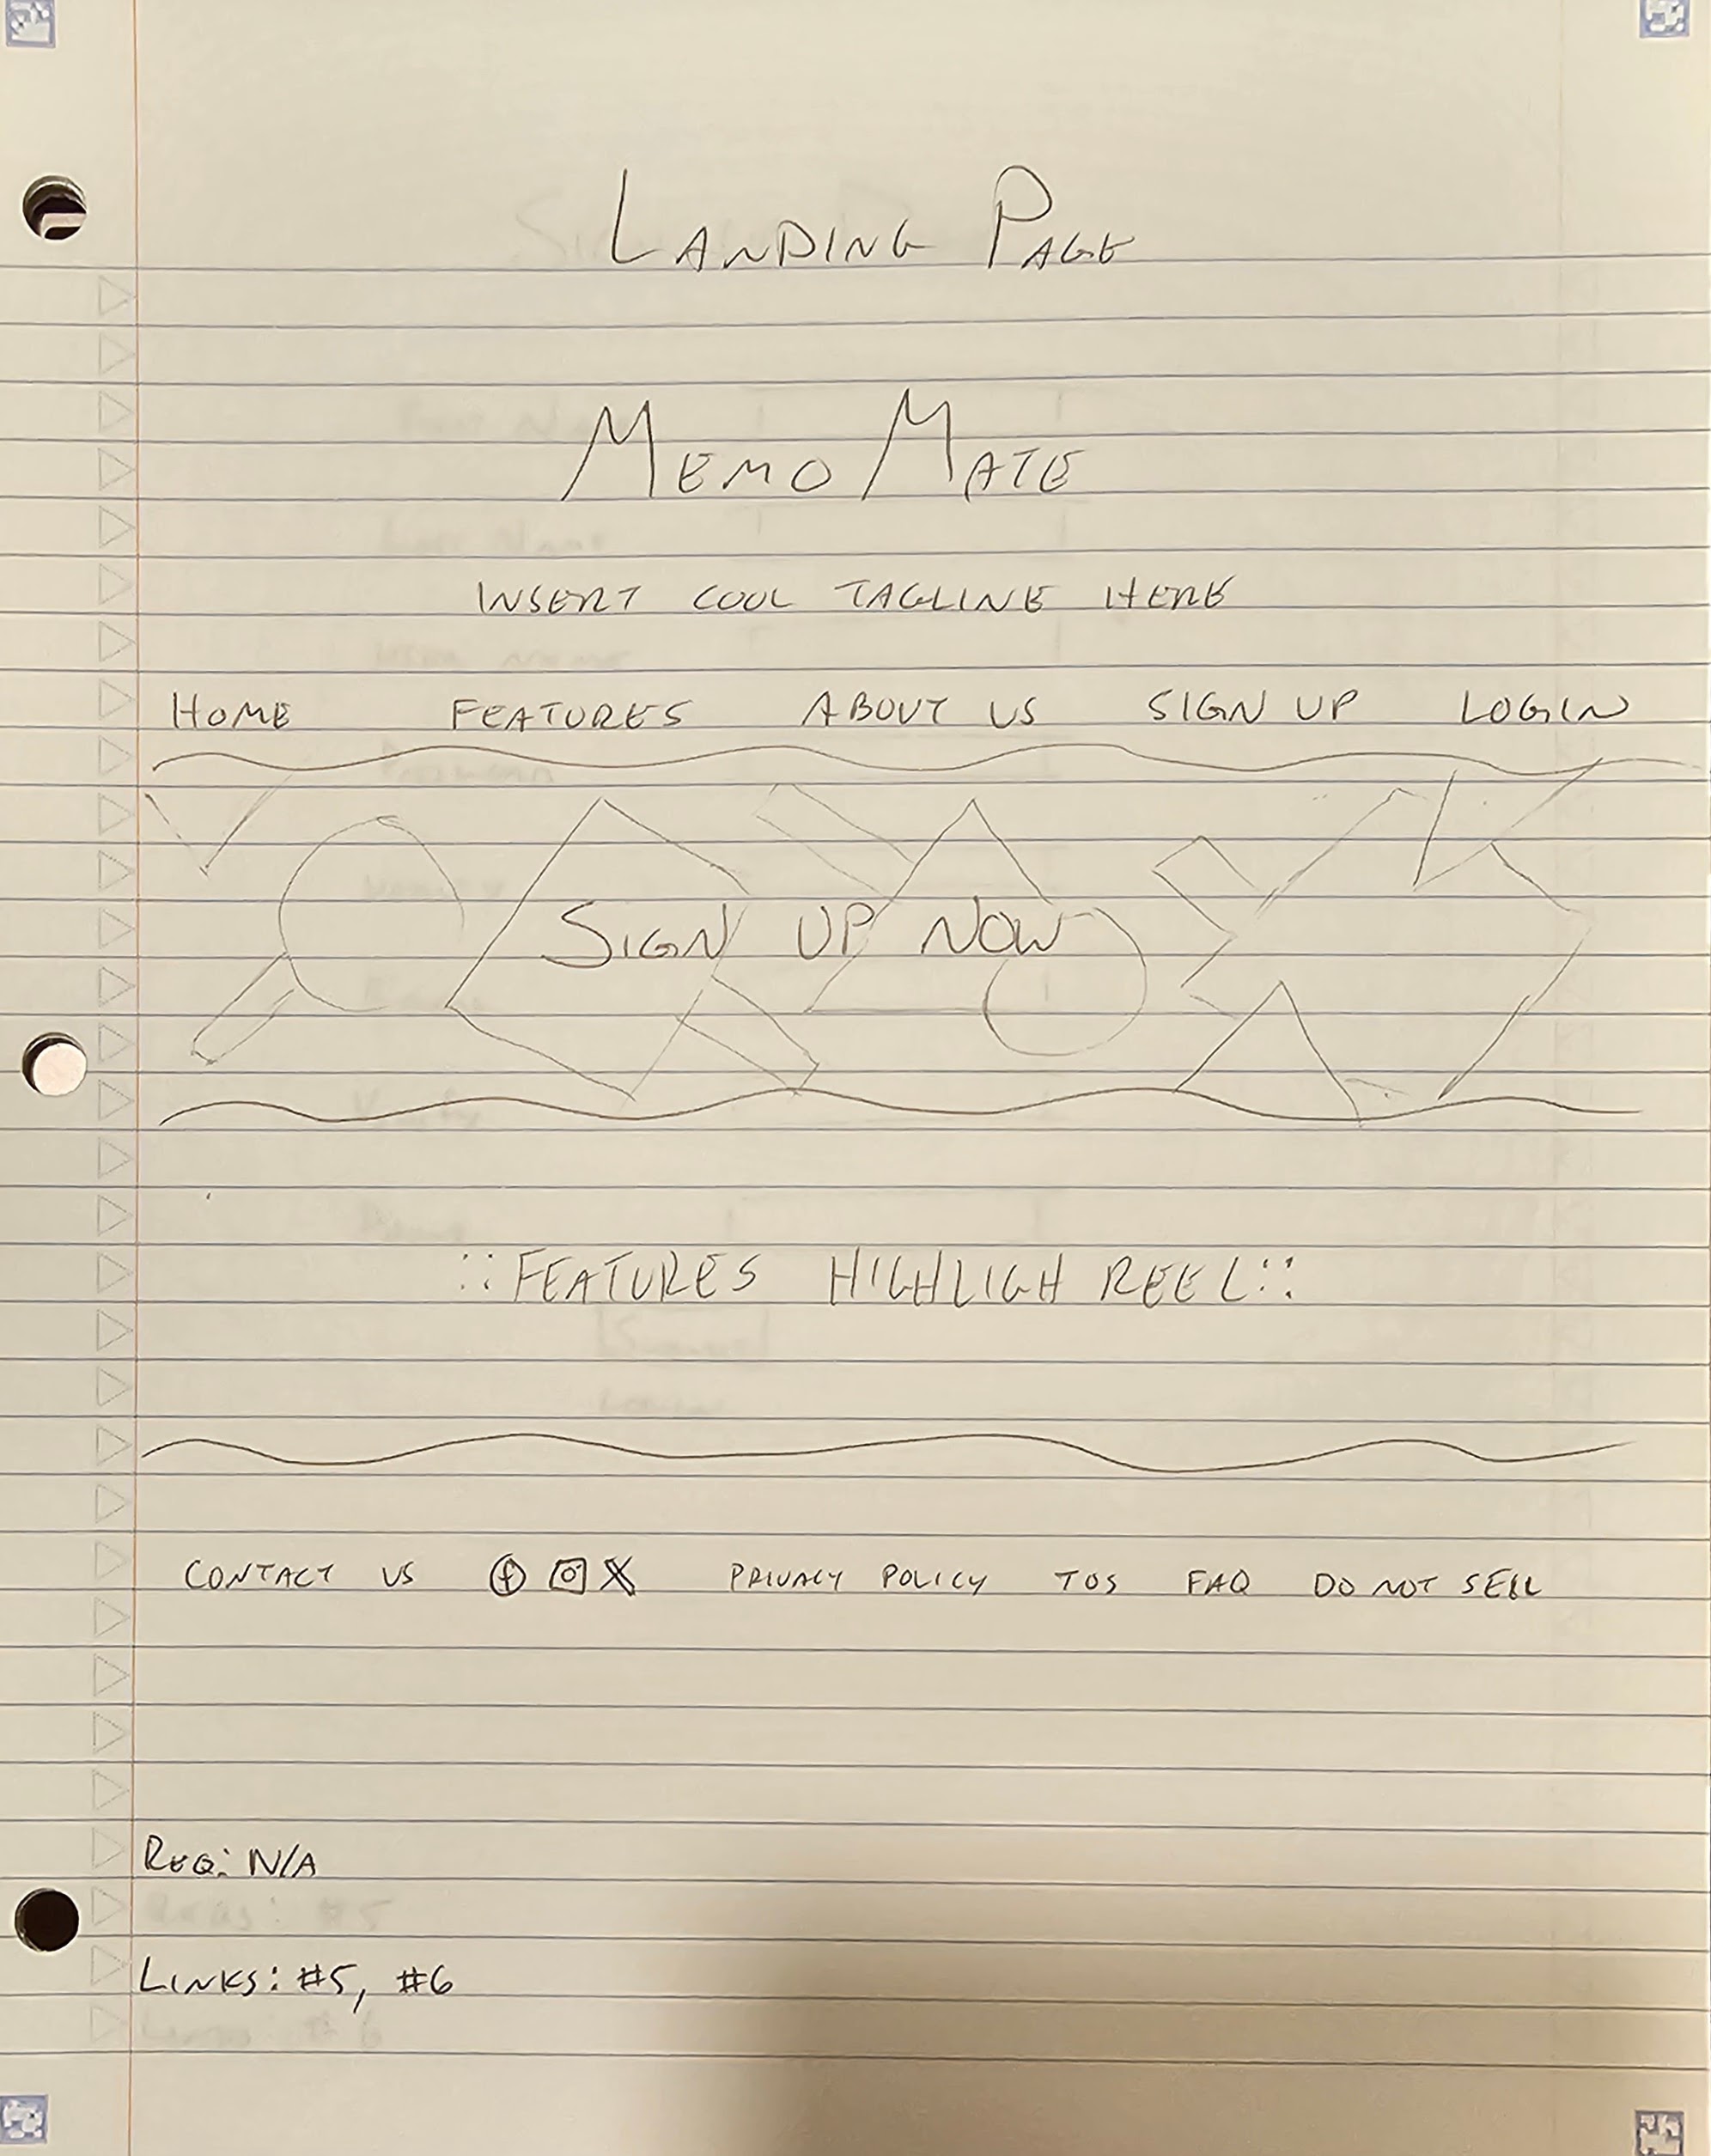 LANDING PAGE
MEMO MATE
INSERT COOL TAGLINE HERE
HOME FEATURES ABOUT US SIGN UP LOGIN
SIGN UP NOW
::FEATURES HIGHLIGH REEL::
CONTACT US f X PRIVACY POLICY TOS FAQ DO NOT SELL
REQ: N/A
LINKS: #5, #6